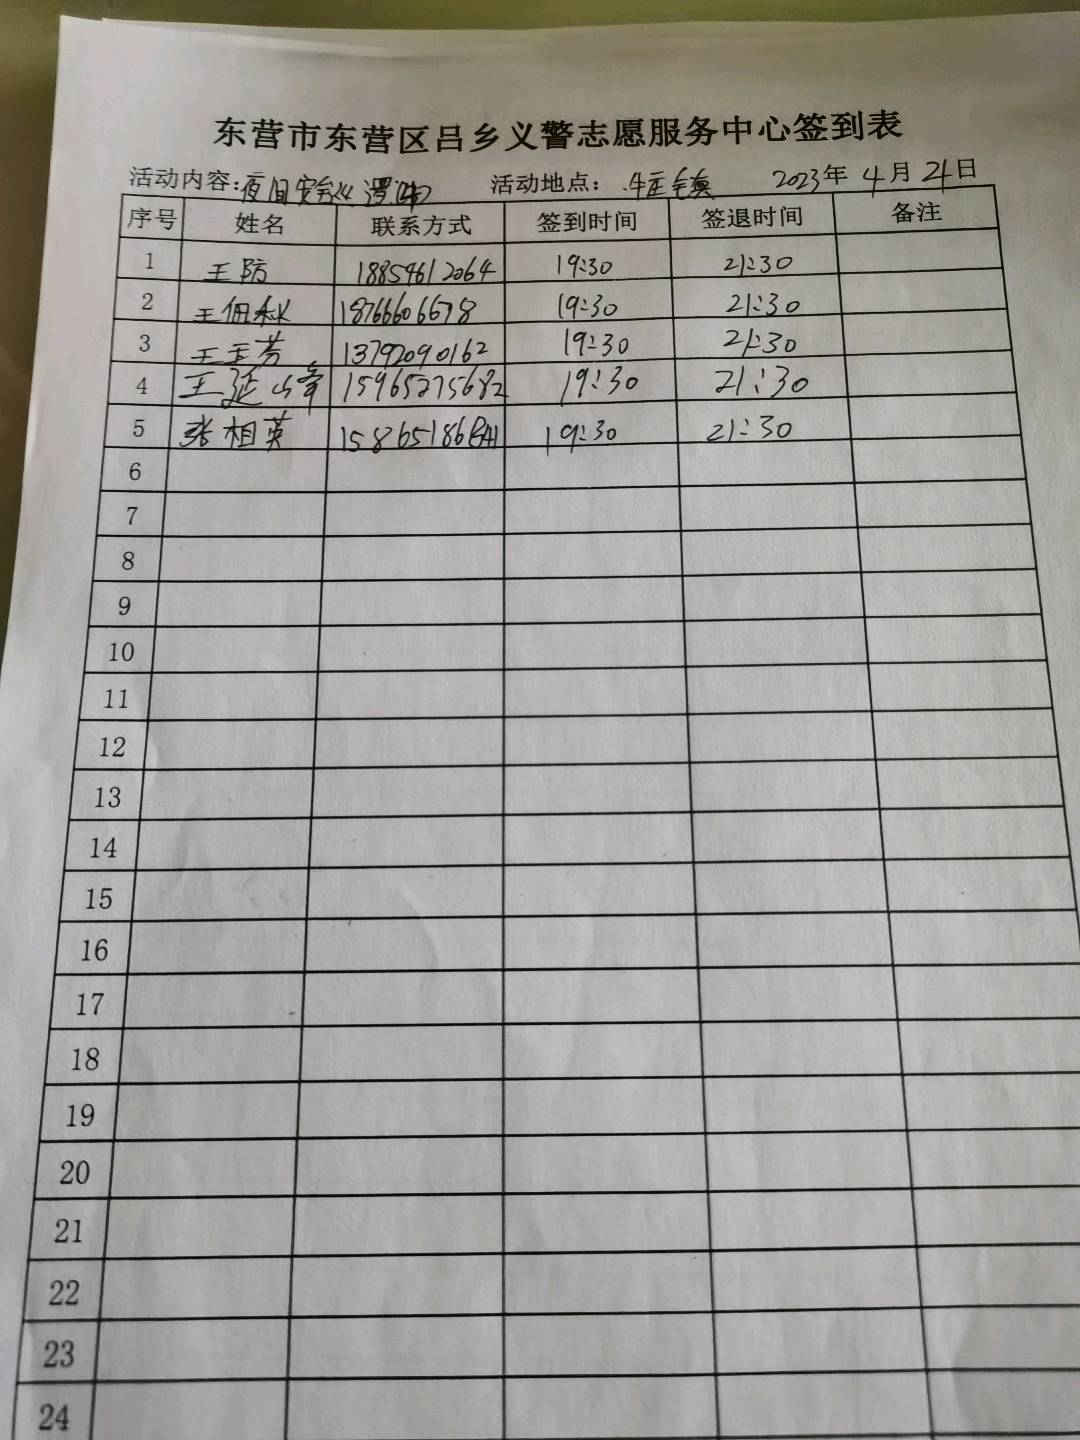 东营市东营区吕乡义警志愿服务中心签到表
活动内容：夜间安全 活动地点：牛庄镇 2023年4月21日
序号 姓名 联系方式 签到时间 签退时间 备注
1 王防 18854612064 19:30 21:30
2 王佃秋 18766606678 19:30 21:30
3 王玉芳 13792090162 19:30 21:30
4 王延峰 15965275682 19:30 21:30
5 张相英 19:30 21:30
6
7
8
9
10
11
12
13
14
15
16
17
18
19
20
21
22
23
24